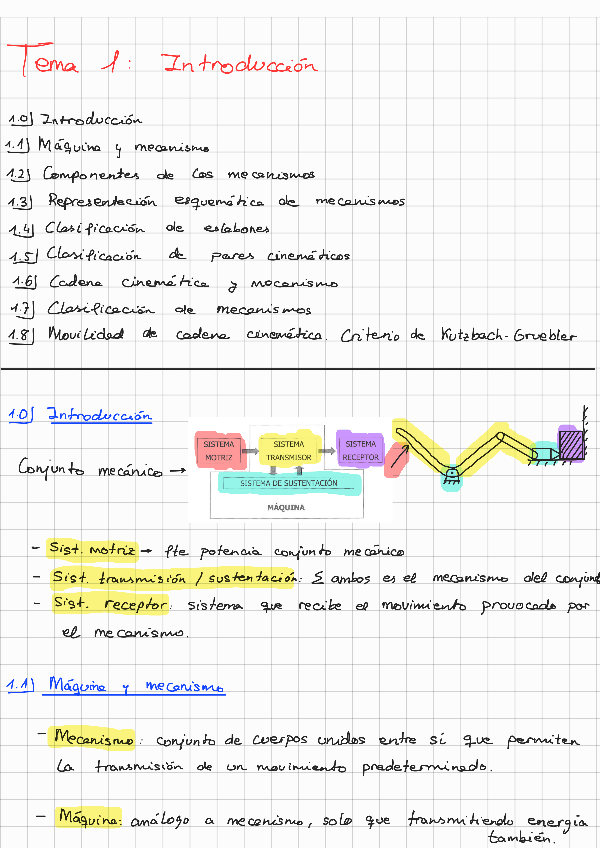 Tema 1: Introducción
1.0) Introducción
1.1) Máquina y mecanismo
1.2) Componentes de los mecanismos
1.3) Representación esquemática de mecanismos
1.4) Clasificación de eslabones
1.5) Clasificación de pares cinemáticos
1.6) Cadena cinemática y mecanismo
1.7) Clasificación de mecanismos
1.8) Movilidad de cadena cinemática. Criterio de Kutzbach-Gruebler
1.0) Introducción
Conjunto mecánico →
SISTEMA MOTRIZ
SISTEMA TRANSMISOR
SISTEMA RECEPTOR
SISTEMA DE SUSTENTACIÓN
MÁQUINA
- Sist. motriz → fte potencia conjunto mecánico
- Sist. transmisión / sustentación: Σ ambos es el mecanismo del conjunt
- Sist. receptor: sistema que recibe el movimiento provocado por
el mecanismo.
1.1) Máquina y mecanismo
- Mecanismo: conjunto de cuerpos unidos entre sí que permiten
la transmisión de un movimiento predeterminado.
- Máquina: análogo a mecanismo, solo que transmitiendo energía
también.